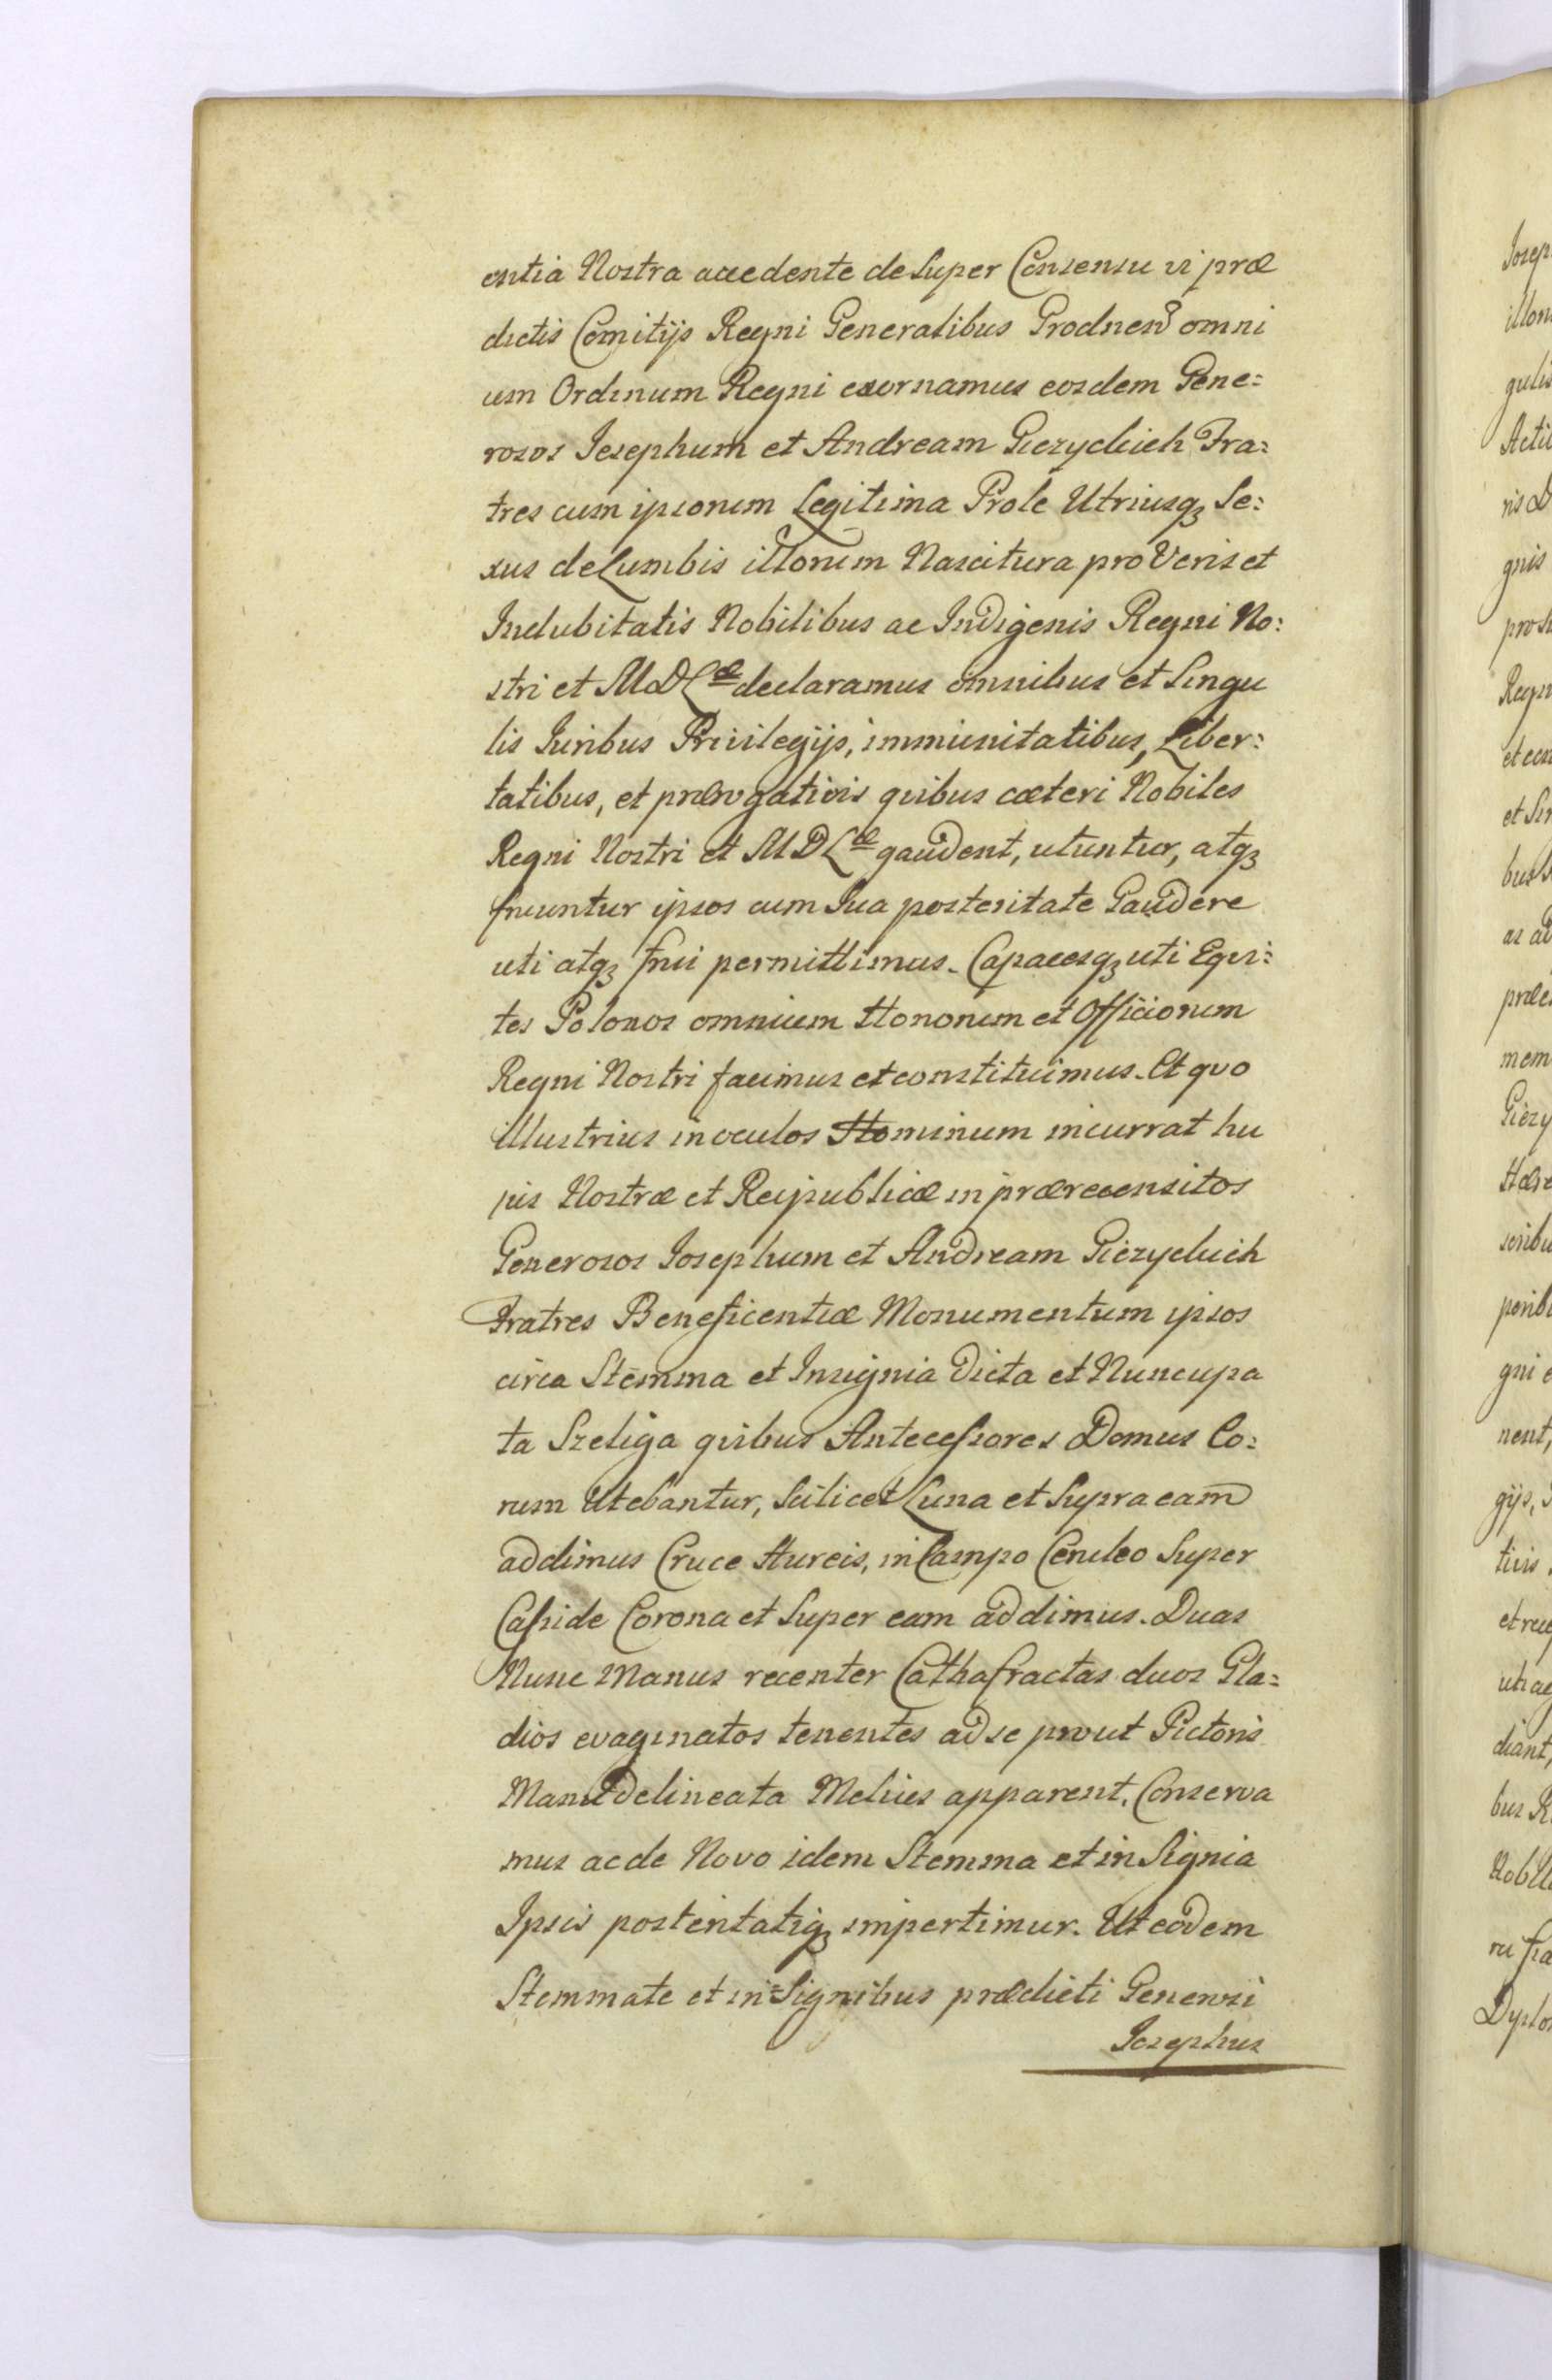 entia Nostra accedente de Super Consensu in præ
dictis Comitijs Regni Generalibus Grodnen̄ omni
um Ordinum Regni exornamus eosdem Gene=
rosos Josephum et Andream Giezyckich Fra=
tres cum ipsorum Legitima Prole Utriusqȝ Se=
xus de Lumbis illorum Nascitura pro Veris et
Indubitatis Nobilibus ac Indigenis Regni No=
stri et MDLæ declaramus omnibus et Singu
lis Juribus Privilegijs, immunitatibus, Liber=
tatibus, et prærogativis quibus cæteri Nobiles
Regni Nostri et MDLæ gaudent, utuntur, atqȝ
fruuntur ipsos cum Sua posteritate Gaudere
uti atqȝ frui permittimus. Capacesqȝ uti Equi=
tes Polonos omnium Honorum et Officiorum
Regni Nostri facimus et constituimus. Et quo
illustrius in oculos Hominum incurrat hu
jus Nostræ et Reipublicæ in prærecensitos
Generosos Josephum et Andream Giezyckich
Fratres Beneficentiæ Monumentum ipsos
circa Stemma et Insignia Dicta et Nuncupa
ta Szeliga quibus Antecessores Domus Eo=
rum Utebantur, Scilicet Luna et Supra eam
addimus Cruce Aureis, in Campo Ceruleo Super
Casside Corona et Super eam addimus. Duas
Nunc Manus recenter Cathafractas duos Gla=
dios evaginatos tenentes ad se prout Pictoris
Manu delineata Melius apparent, Conserva
mus ac de Novo idem Stemma et in Signia
Ipsis posteritatiqȝ impertimur. Ut eodem
Stemmate et in=Signibus prædicti Generosi
Josephus
Josep
illon
gulis
Actu
ris D
gnis
pro
Regn
et con
et Sin
bus
as ad
præ
mem
Giezy
Hære
peribu
gni e
nent,
gijs,
tivis
et rec
uti
diant,
bus R
Nobil
Dyplo